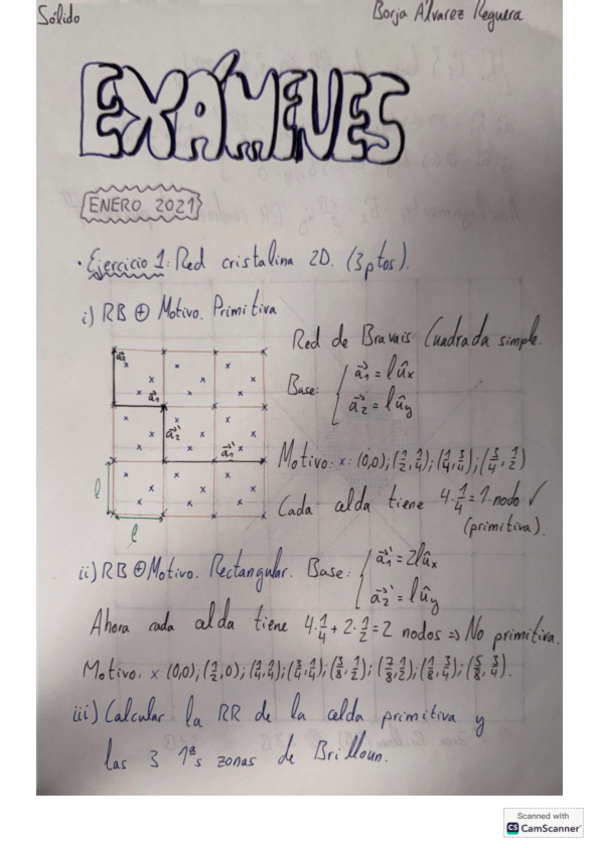 Sólido
Borja Álvarez Reguera
EXÁMENES
ENERO 2021
· Ejercicio 1: Red cristalina 2D. (3ptos).
i) RB ⊕ Motivo. Primitiva
Red de Bravais: Cuadrada simple.
Base: { a⃗₁ = l û_x
a⃗₂ = l û_y
a⃗₂
a⃗₁
a⃗₂'
a⃗₁'
l
l
Motivo: x: (0,0); (1/2, 1/4); (1/4, 3/4); (3/4, 1/2)
Cada celda tiene 4·1/4 = 1 nodo ✓
(primitiva).
ii) RB ⊕ Motivo. Rectangular. Base: { a⃗₁' = 2l û_x
a⃗₂' = l û_y
Ahora cada celda tiene 4·1/4 + 2·1/2 = 2 nodos => No primitiva.
Motivo: x: (0,0); (1/2, 0); (1/4, 1/4); (3/4, 1/4); (3/8, 1/2); (7/8, 1/2); (1/8, 3/4); (5/8, 3/4).
iii) Calcular la RR de la celda primitiva y
las 3 1ªs zonas de Brilloun.
Scanned with
CS CamScanner